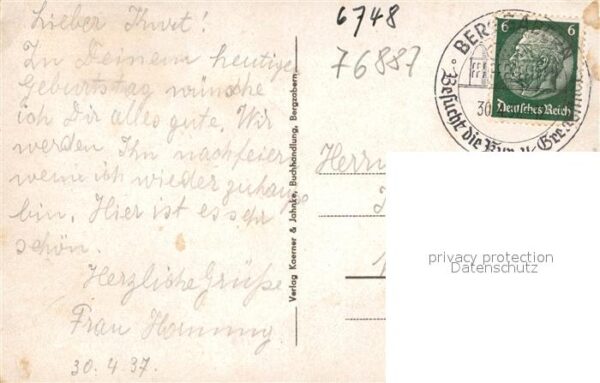 Lieber Kurt!
Zu Deinem heutigen
Geburtstag wünsche
ich Dir alles gute. Wir
werden Ihn nachfeiern
wenn ich wieder zuhause
bin. Hier ist es sehr
schön.
Herzliche Grüße
Frau Hornung
30.4.37.
Verlag Kaerner & Jahnke, Buchhandlung, Bergzabern
6748
76887
Herrn
BERGZABERN
30
Besucht die
6 6
Deutsches Reich
privacy protection
Datenschutz